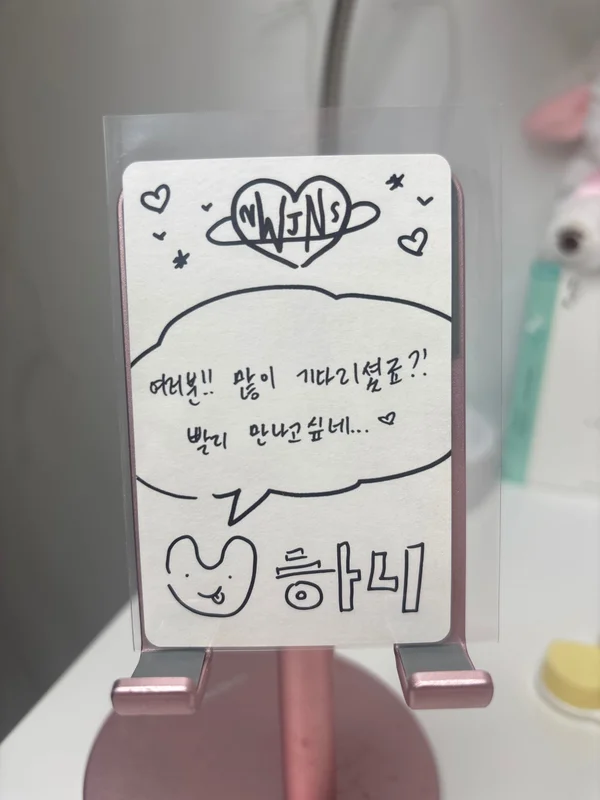 NWJNS
여러분!! 많이 기다리셨죠?!
빨리 만나고 싶네...♡
하니